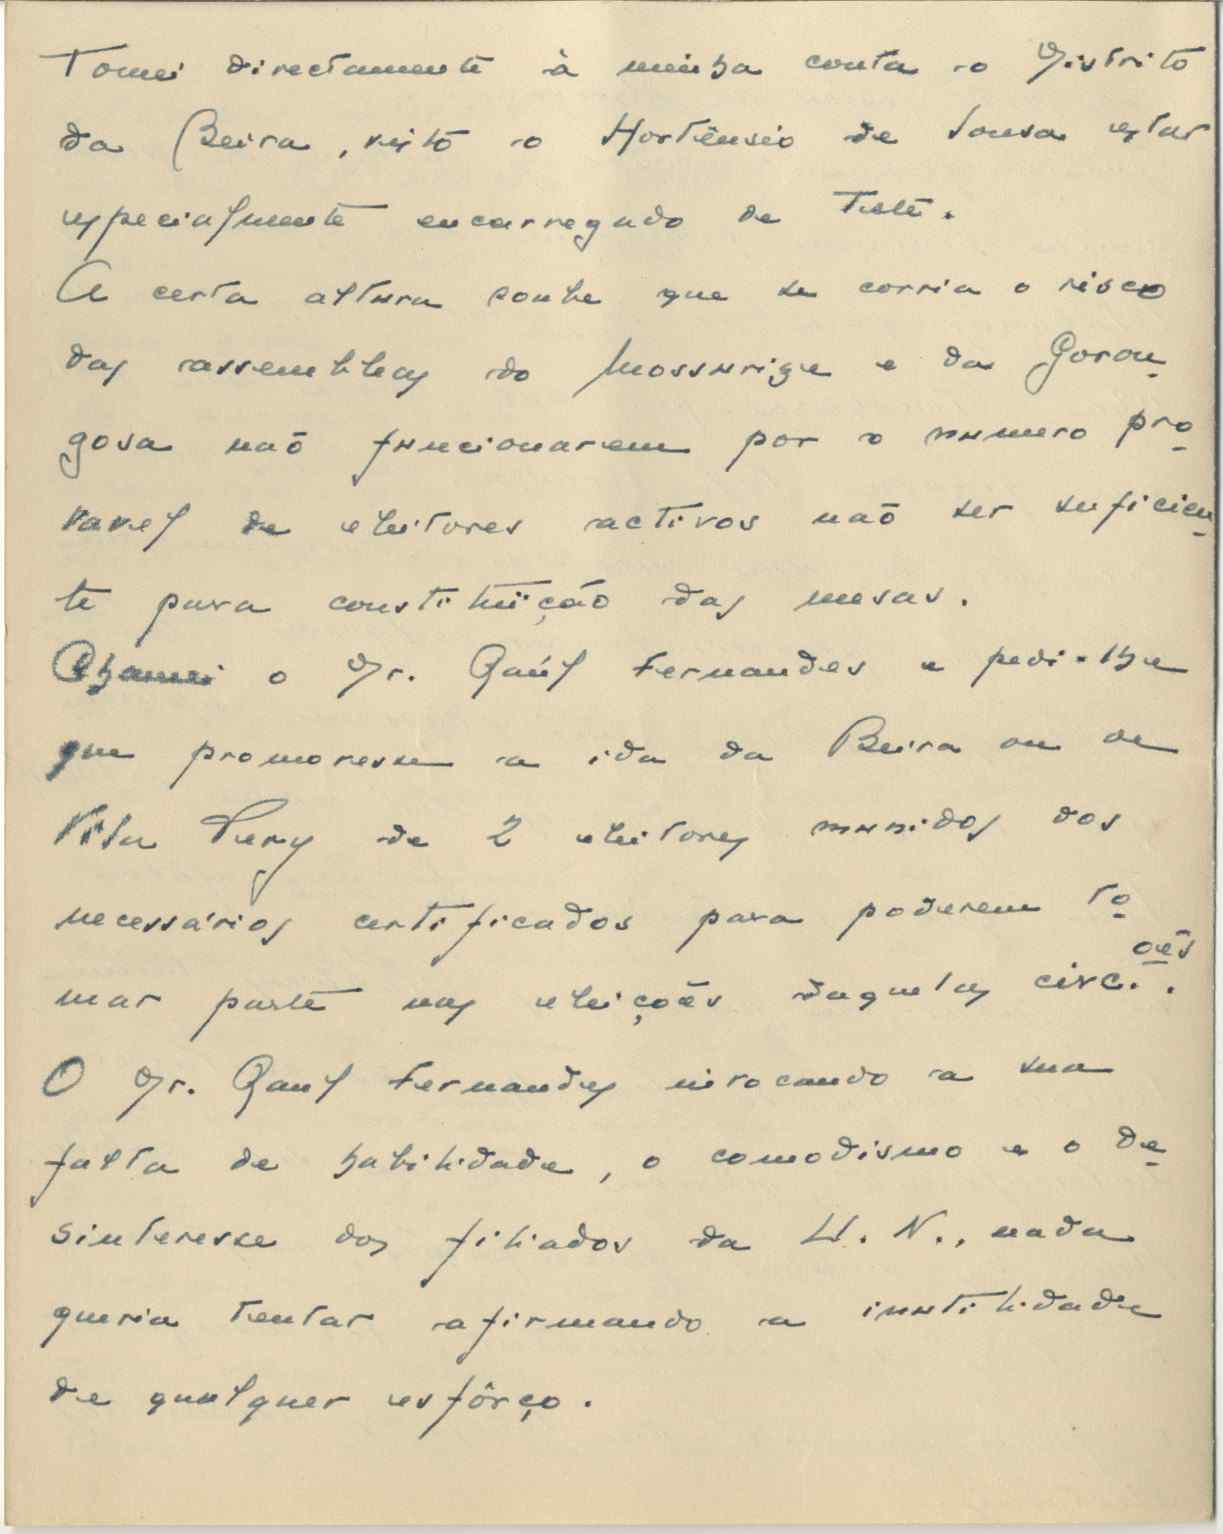 Tomei directamente à minha conta o Distrito
da Beira, visto o Hortênsio de Sousa estar
especialmente encarregado de Tete.
A certa altura soube que se corria o risco
das assembleas do Mossurize e da Goron-
gosa não funcionarem por o numero pro-
vavel de eleitores activos não ser suficien-
te para constituïção das mesas.
Chamei o Dr. Raúl Fernandes e pedi-lhe
que promovesse a ida da Beira ou de
Vila Pery de 2 eleitores munidos dos
necessários certificados para poderem to-
mar parte nas eleições daquelas circ.ões.
O Dr. Raul Fernandes invocando a sua
falta de habilidade, o comodismo e o de-
sinteresse dos filiados da U. N., nada
queria tentar afirmando a inutilidade
de qualquer esfôrço.